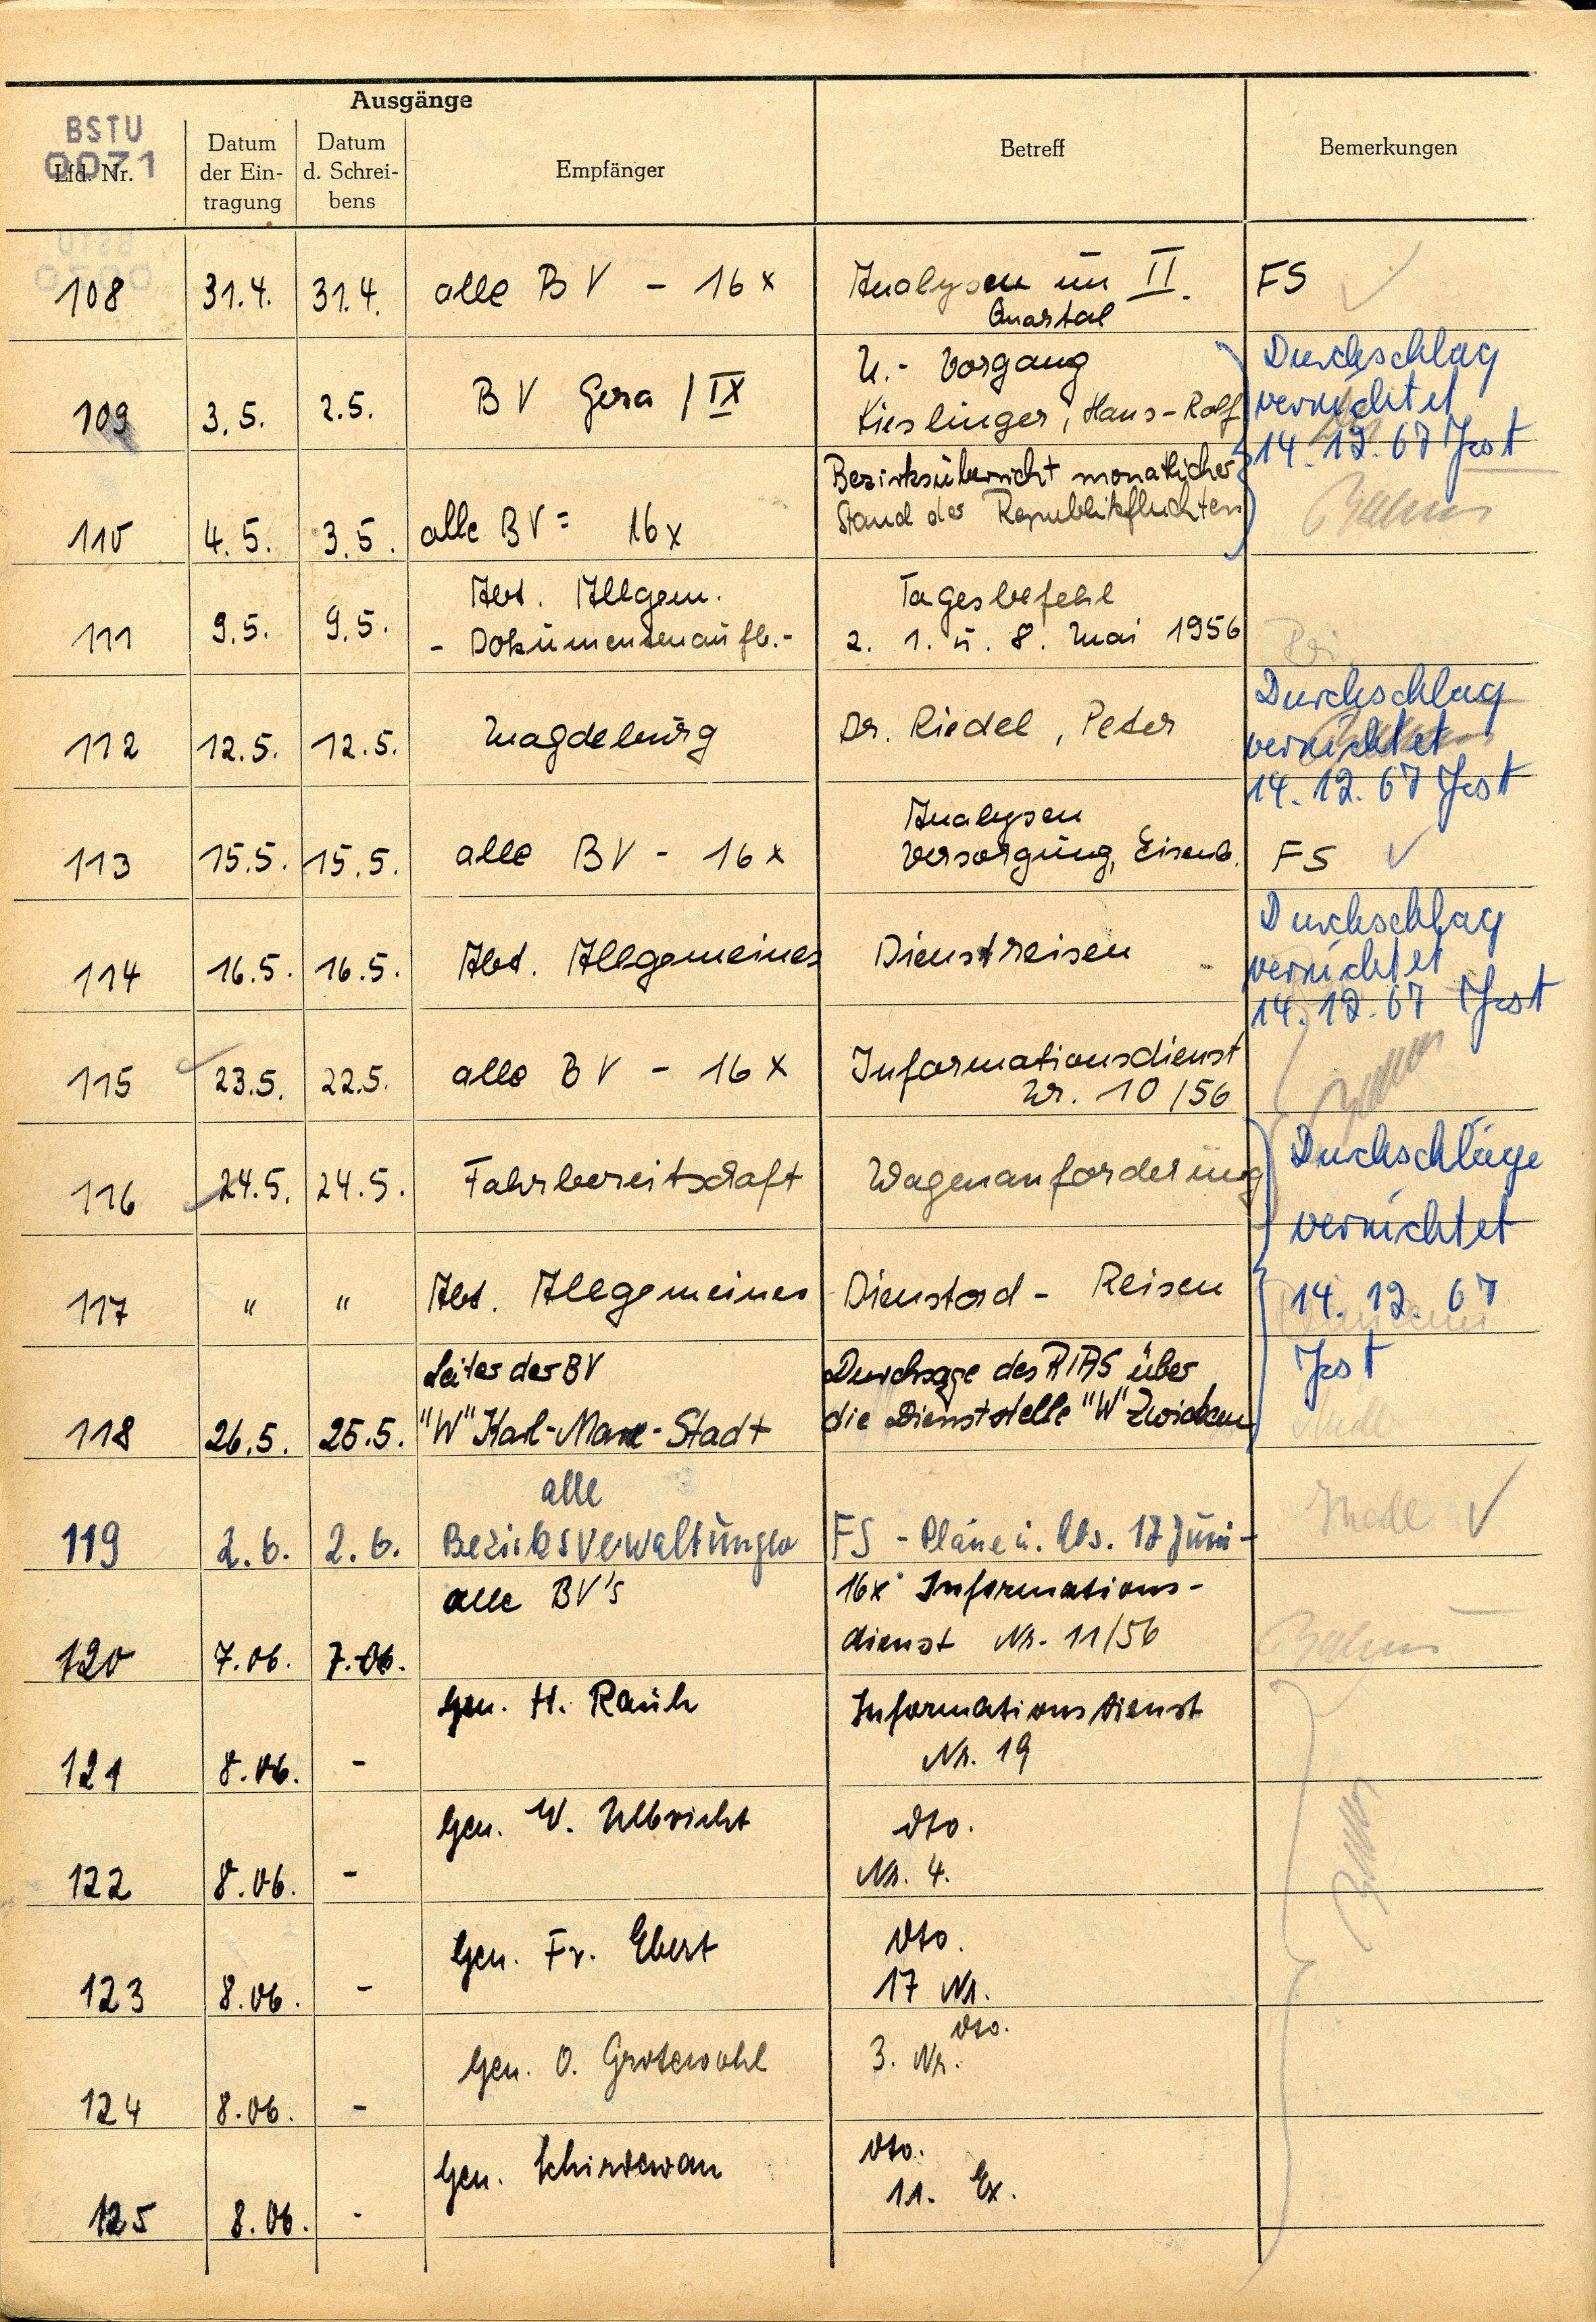 Ausgänge
BSTU
0071
Lfd. Nr.
Datum
der Ein-
tragung
Datum
d. Schrei-
bens
Empfänger
Betreff
Bemerkungen
108 31.4. 31.4. alle BV - 16 x Analysen im II. FS
Quartal
U.- Vorgang Durchschlag
109 3.5. 2.5. BV Gera / IX Kieslinger, Hans-Rolf vernichtet
14.12.67 Jost
Bezirksübersicht monatlicher
110 4.5. 3.5. alle BV = 16 x Stand der Republikfluchten
Abt. Allgem. Tagesbefehl
111 9.5. 9.5. - Dokumentenaufb.- z. 1. u. 8. Mai 1956
Durchschlag
112 12.5. 12.5. Magdeburg Dr. Riedel, Peter vernichtet
14.12.67 Jost
Analysen
113 15.5. 15.5. alle BV - 16 x Versorgung, Eisenb. FS
Durchschlag
114 16.5. 16.5. Abt. Allgemeines Dienstreisen vernichtet
14.12.67 Jost
115 23.5. 22.5. alle BV - 16 x Informationsdienst
Nr. 10/56
Durchschläge
116 24.5. 24.5. Fahrbereitschaft Wagenanforderung vernichtet
117 " " Abt. Allgemeines Dienstard - Reisen 14.12.67
Leiter der BV Durchsage des RIAS über Jost
118 26.5. 25.5. "W" Karl-Marx-Stadt die Dienststelle "W" Zwickau
alle
119 2.6. 2.6. Bezirksverwaltungen FS - Pläne u. Abs. 17 Juni -
alle BV's 16x Informations-
120 7.06. 7.06. dienst Nr. 11/56
Gen. H. Rauh Informationsdienst
121 8.06. - Nr. 19
Gen. W. Ulbricht dto.
122 8.06. - Nr. 4.
Gen. Fr. Ebert dto.
123 8.06. - 17 Nr.
dto.
Gen. O. Grotewohl 3. Nr.
124 8.06. -
Gen. Schirdewan dto.
11. Ex.
125 8.06. -